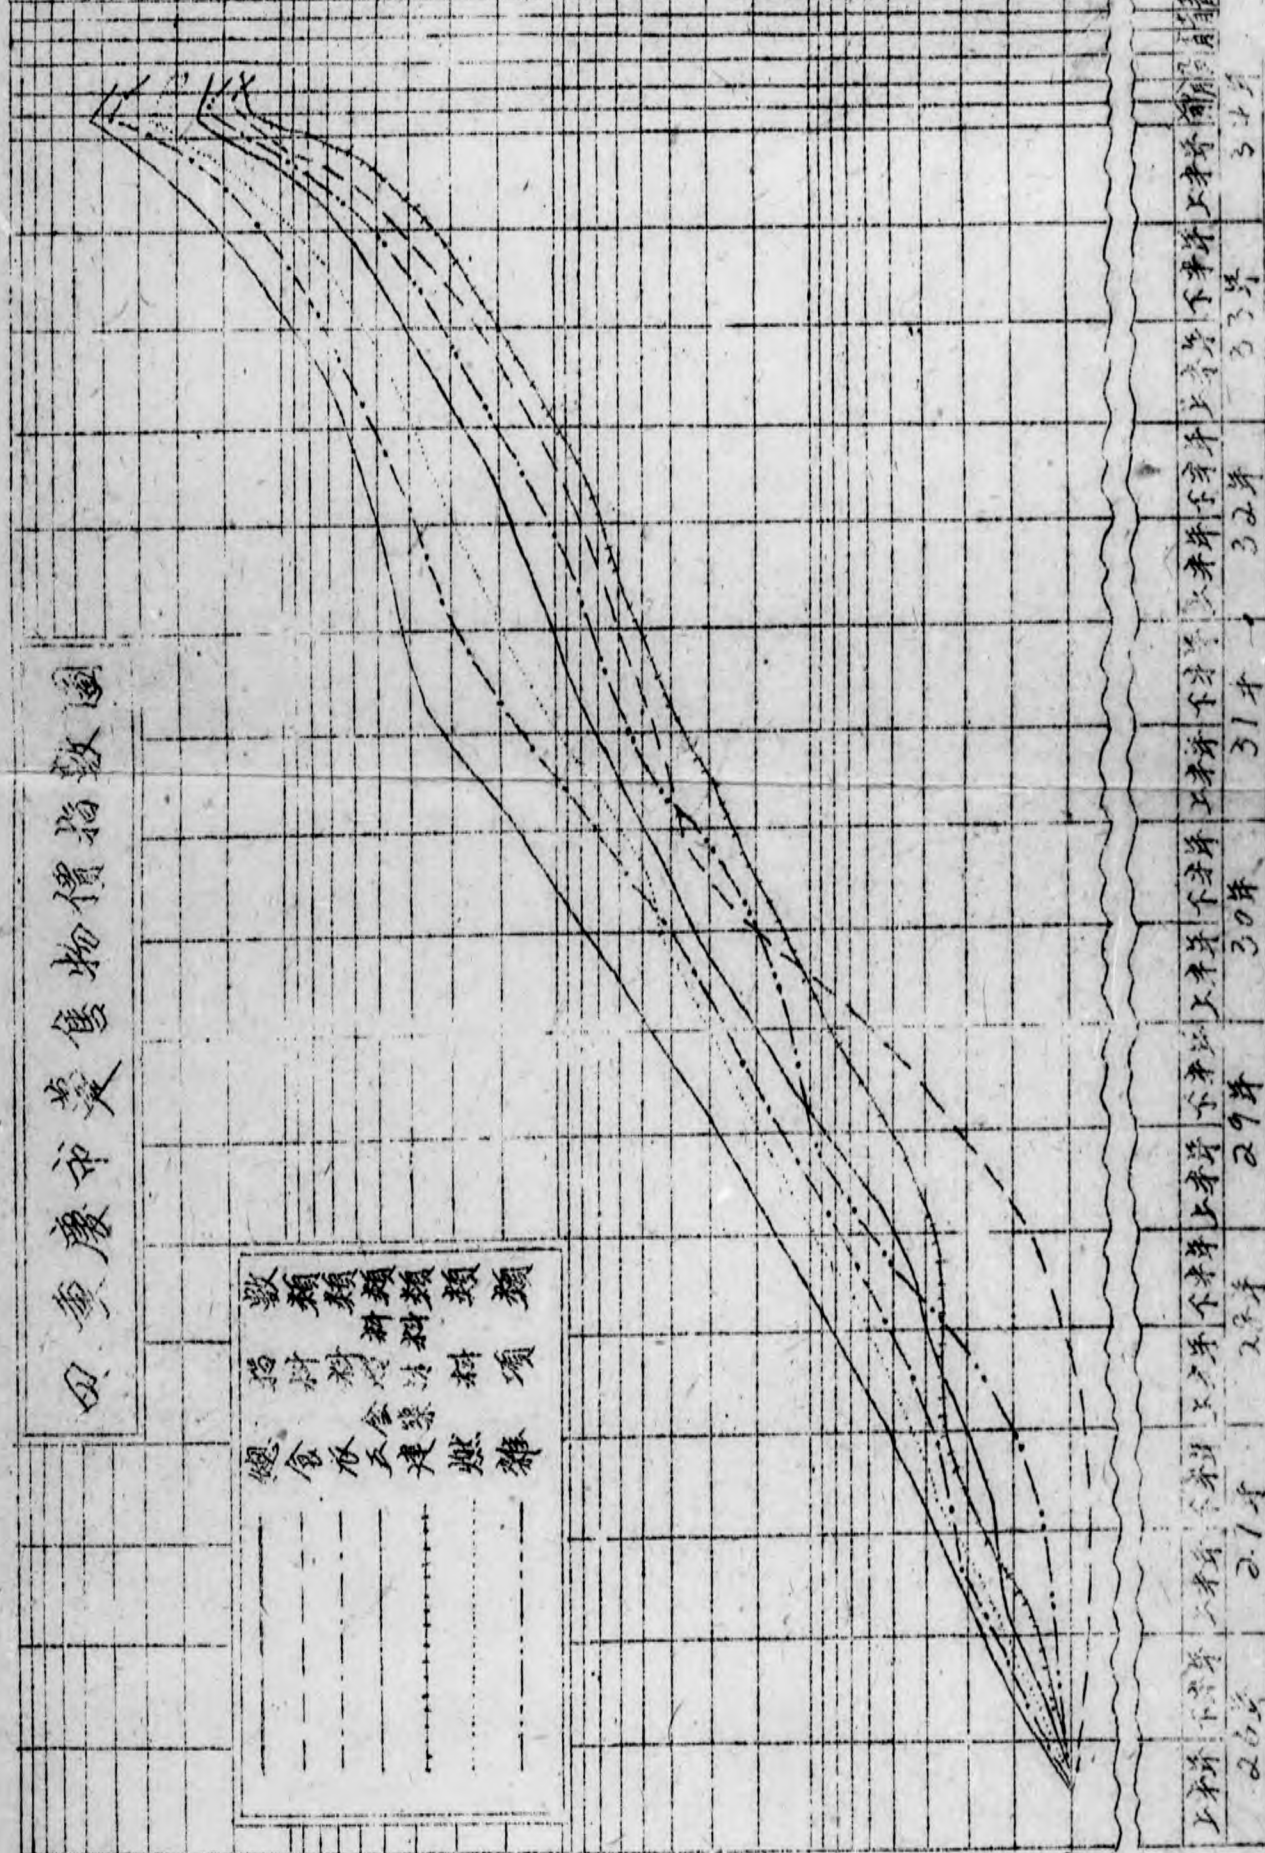 重慶市躉售物價指數圖
總指數
食料類
衣料類
五金電料類
建築材料類
燃料類
雜項類
上半年 下半年 上半年 下半年 上半年 下半年 上半年 下半年 上半年 下半年 上半年 下半年 上半年 下半年 上半年 下半年 上半年
26年 27年 28年 29年 30年 31年 32年 33年 34年